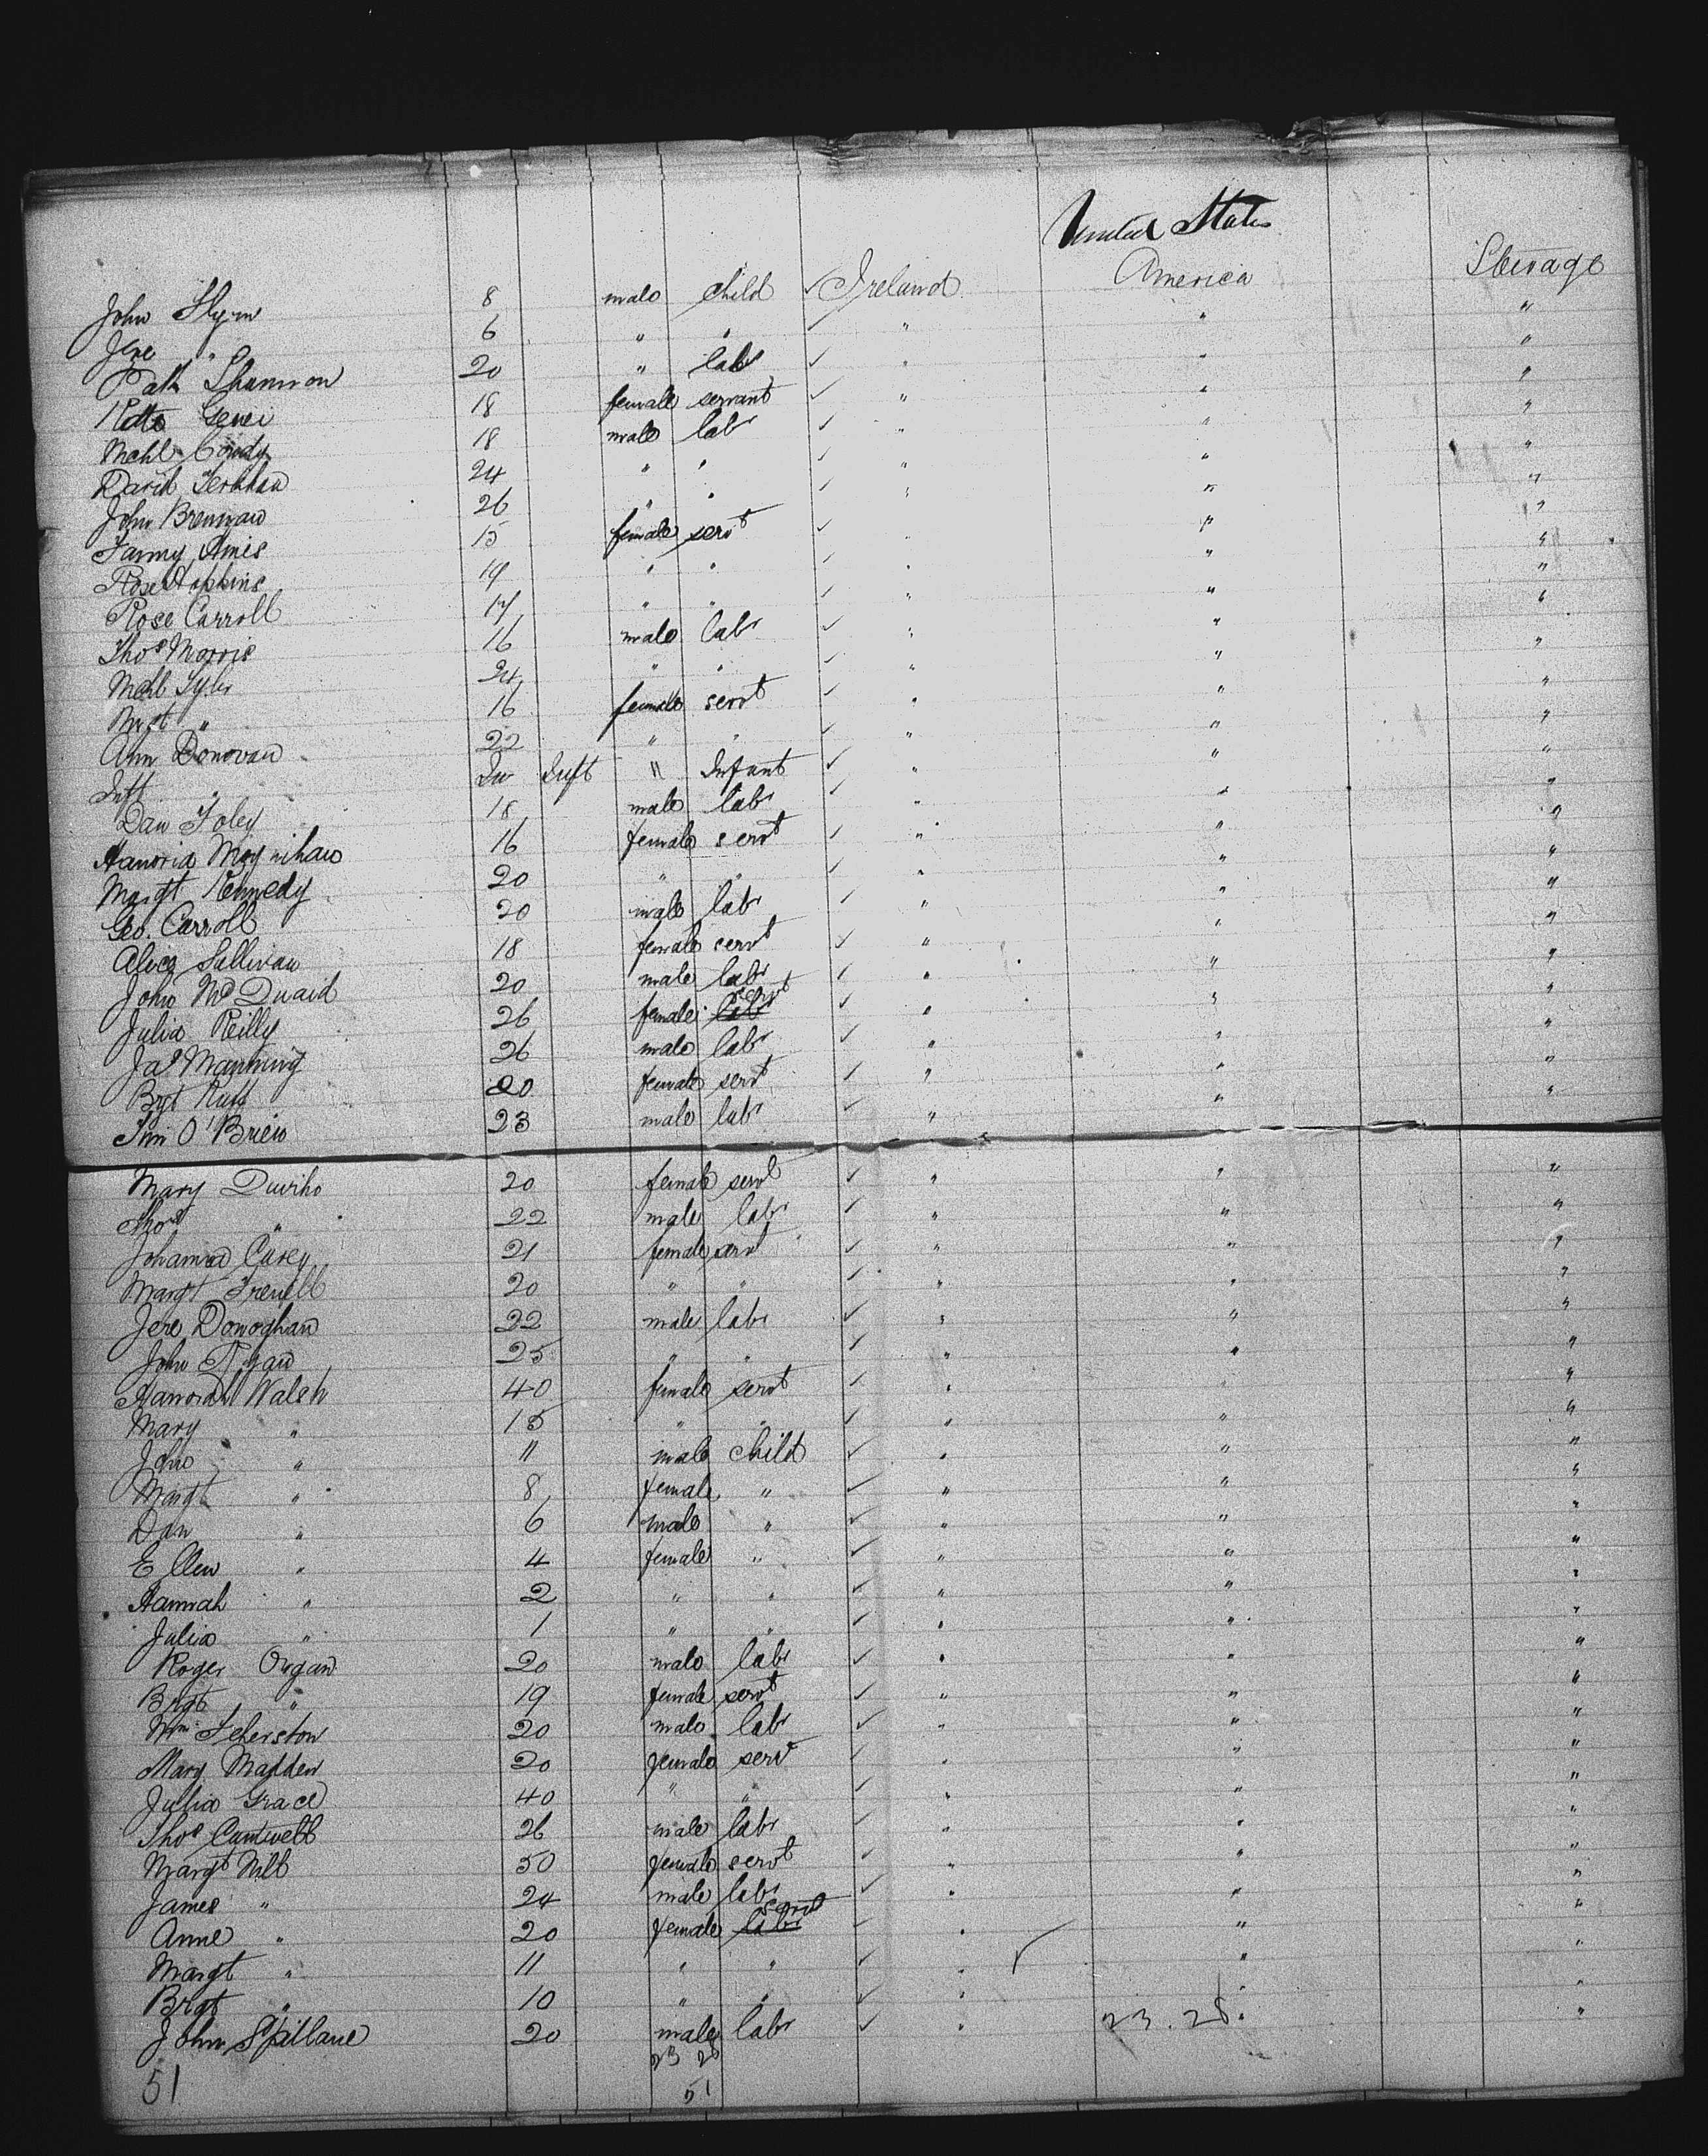 United States
John Flynn 8 male child ✓ Ireland America Steerage
Jere " 6 " " ✓ " " "
Patk Shannon 20 " labr ✓ " " "
Kate 18 female servant ✓ " " "
Michl 18 male labr ✓ " " "
David 24 " " ✓ " " "
John Brennan 26 " " ✓ " " "
Fanny Amis 15 female servt ✓ " " "
Rose Hopkins 19 " " ✓ " " "
Rose Carroll 17 " " ✓ " " "
Thos Morris 16 male labr ✓ " " "
Michl 24 " " ✓ " " "
" 16 female servt ✓ " " "
Ann Donovan 22 " " ✓ " " "
Inft " Inft " Infant ✓ " " "
Dan Foley 18 male labr ✓ " " "
Hanoria Moynihan 16 female servt ✓ " " "
Margt Kennedy 20 " " ✓ " " "
Geo. Carroll 20 male labr ✓ " " "
Alice Sullivan 18 female servt ✓ " " "
John McQuaid 20 male labr ✓ " " "
Julia Reilly 26 female labr servt ✓ " " "
Jas Manning 26 male labr ✓ " " "
Brgt 20 female servt ✓ " " "
Tim O'Brien 23 male labr ✓ " " "
Mary 20 female servt ✓ " " "
Thos " 22 male labr ✓ " " "
Johanna Carey 21 female servt ✓ " " "
Margt 20 " " ✓ " " "
Jere Donoghan 22 male labr ✓ " " "
John Ryan 25 " " ✓ " " "
Hanorah Walsh 40 female servt ✓ " " "
Mary " 15 " " ✓ " " "
John " 11 male child ✓ " " "
Margt " 8 female " ✓ " " "
Dan " 6 male " ✓ " " "
Ellen " 4 female " ✓ " " "
Hannah " 2 " " ✓ " " "
Julia " 1 " " ✓ " " "
Roger Organ 20 male labr ✓ " " "
Brgt " 19 female servt ✓ " " "
Wm Feherston 20 male labr ✓ " " "
Mary Madden 20 female servt ✓ " " "
Julia Grace 40 " " ✓ " " "
Thos Cantwell 26 male labr ✓ " " "
Margt 50 female servt ✓ " " "
James " 24 male labr ✓ " " "
Anne " 20 female labr servt ✓ " " "
Margt " 11 " " ✓ " ✓ " "
Brgt " 10 " " ✓ " " "
John Spillane 20 male labr ✓ " 23.28 "
23 28
51 51